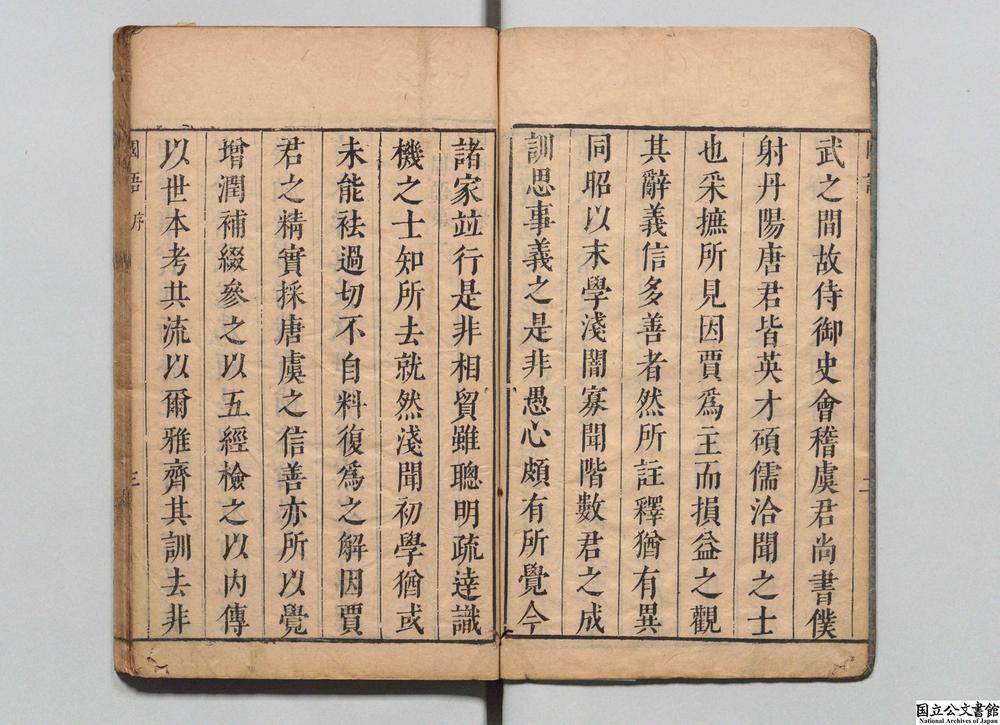 武之間故侍御史會稽虞君尚書僕
射丹陽唐君皆英才碩儒洽聞之士
也采摭所見因賈為主而損益之觀
其辭義信多善者然所註釋猶有異
同昭以末學淺闇寡聞階數君之成
訓思事義之是非愚心頗有所覺今
諸家並行是非相貿雖聰明疏達識
機之士知所去就然淺聞初學猶或
未能祛過切不自料復為之解因賈
君之精實採唐虞之信善亦所以覺
增潤補綴參之以五經檢之以內傳
以世本考其流以爾雅齊其訓去非
國語 序
三
国立公文書館
National Archives of Japan